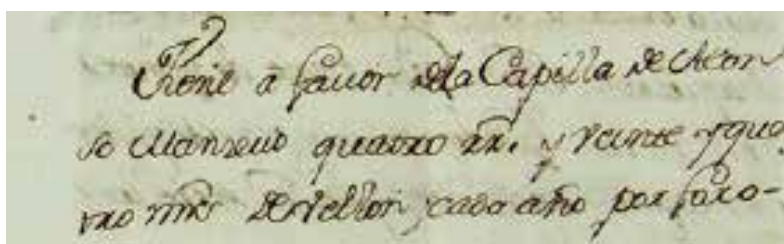 Tiene a fauor dela Capilla de Alon
so Manxeus quatro rr. y veinte y qua
tro mrs de vellon cada año por fuxo-